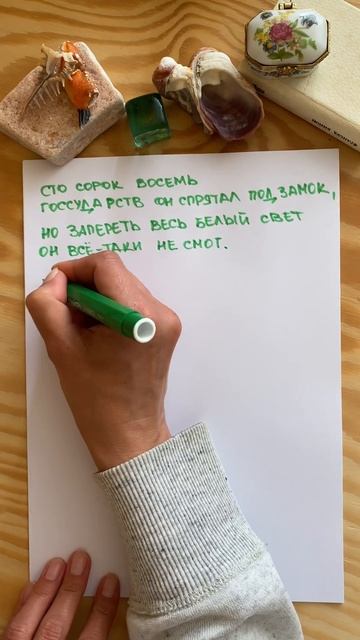 СТО СОРОК ВОСЕМЬ
ГОССУДАРСТВ ОН СПРЯТАЛ ПОД ЗАМОК,
НО ЗАПЕРЕТЬ ВЕСЬ БЕЛЫЙ СВЕТ
ОН ВСЁ-ТАКИ НЕ СМОГ.